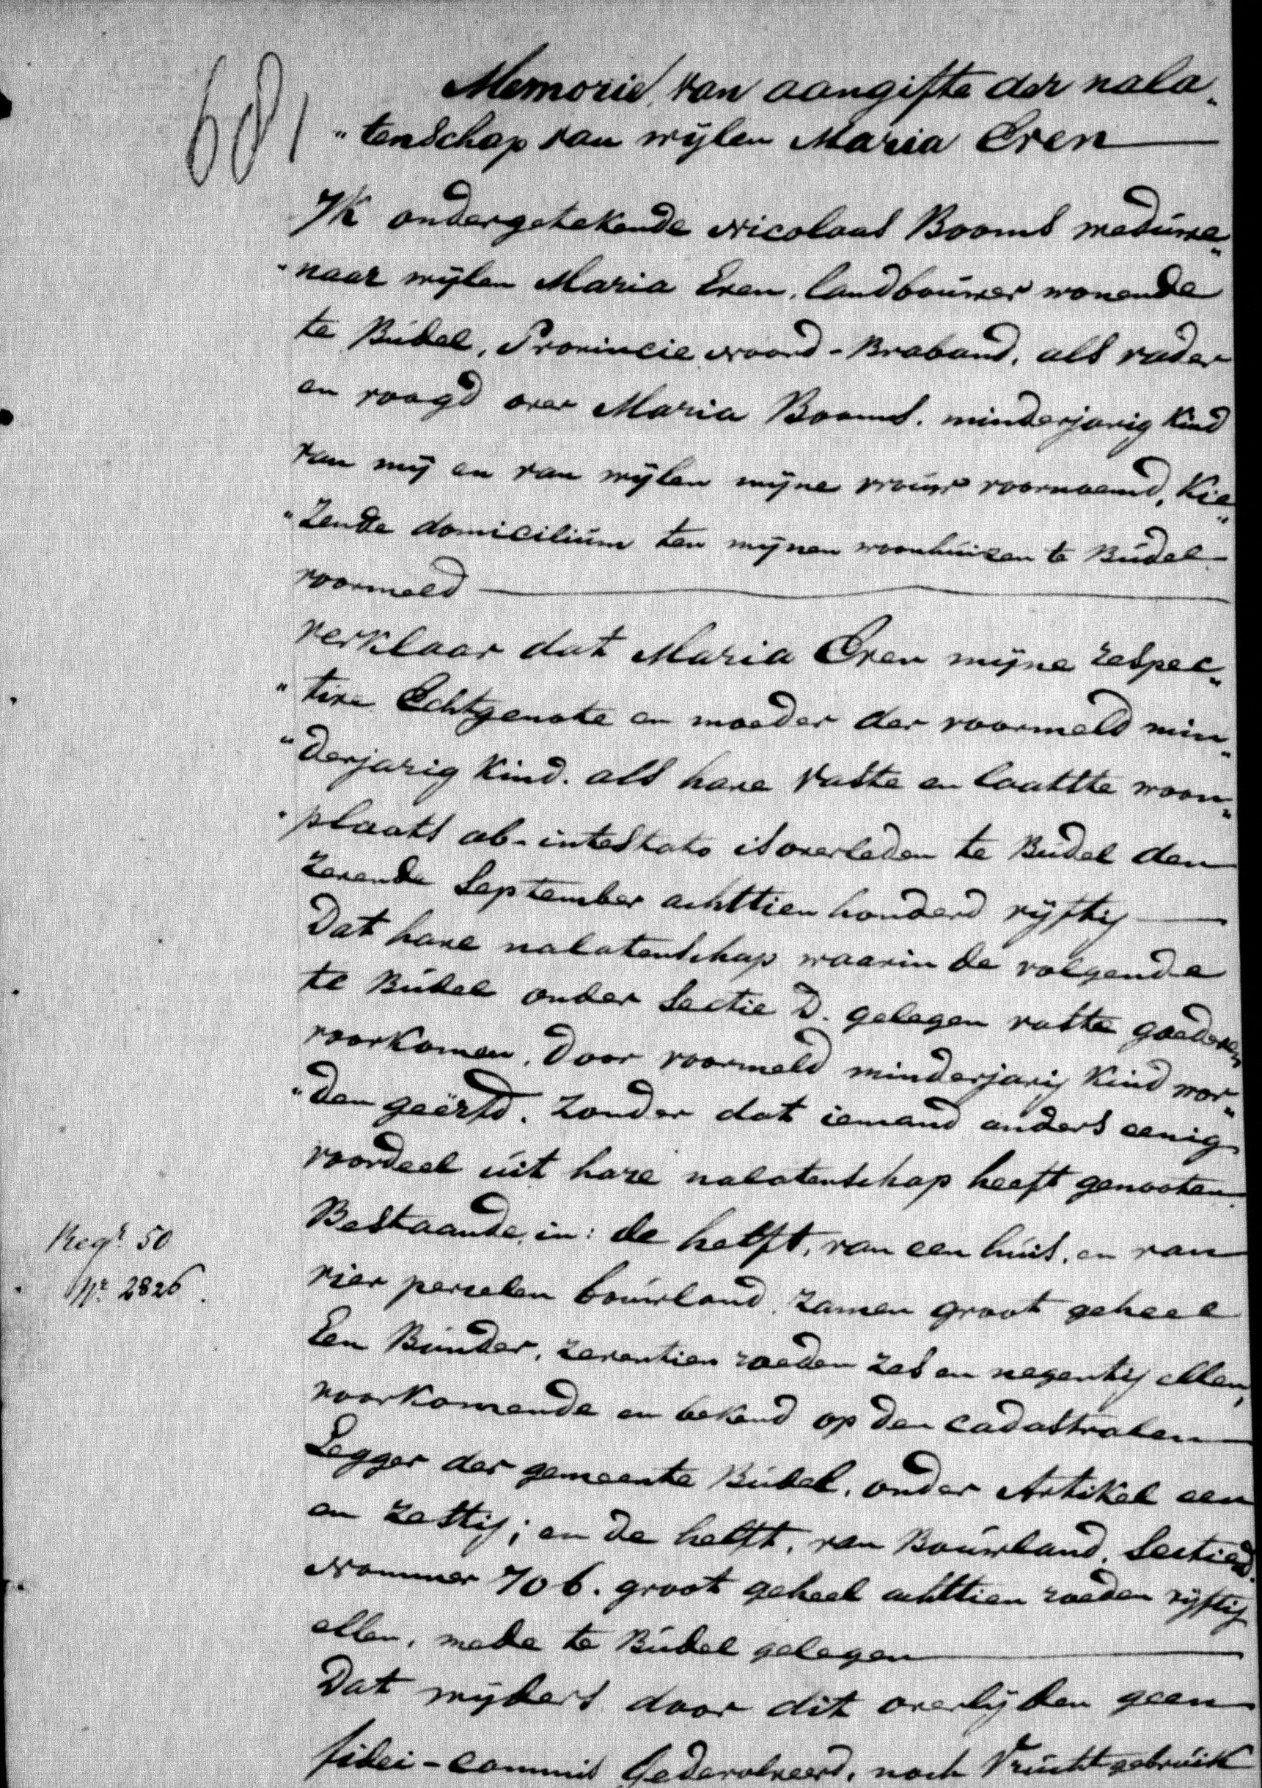 681
Memorie van aangifte der nala„
„tenschap van wijlen Maria Eren
Ik ondergetekende Nicolaas Booms weduwe„
„naar wijlen Maria Eren, landbouwer wonende
te Budel, Provincie Noord-Braband, als vader
en voogd over Maria Booms, minderjarig kind
van mij en van wijlen mijne vrouw voornoemd, kie„
„zende domicilium ten mijnen woonhuizen te Budel
voormeld
verklaar dat Maria Eren mijne respec„
„tive Echtgenote en moeder der voormeld min„
„derjarig kind, als hare vaste en laatste woon„
„plaats ab-intestato is overleden te Budel den
zevende September achttien honderd vyftig
Dat hare nalatenschap waarin de volgende
te Budel onder Sectie D. gelegen vaste goederen
voorkomen, door voormeld minderjarig kind wor„
„den geërfd, zonder dat iemand anders eenig
voordeel uit hare nalatenschap heeft genooten
Bestaande in: de helft, van een huis, en van
vier percelen bouwland, zamen groot geheel
Een Bunder, zeventien roeden zes en negentig ellen,
voorkomende en bekend op den cadastralen
Legger der gemeente Budel, onder Artikel een
en zestig; en de helft, van Bouwland, Sectie D.
Nommer 706. groot geheel achttien roeden vyftig
ellen, mede te Budel gelegen
Dat wijders door dit overlijden geen
fidei-commis Gedevolveerd, noch Vruchtgebruik
Regr. 50
No. 2826.